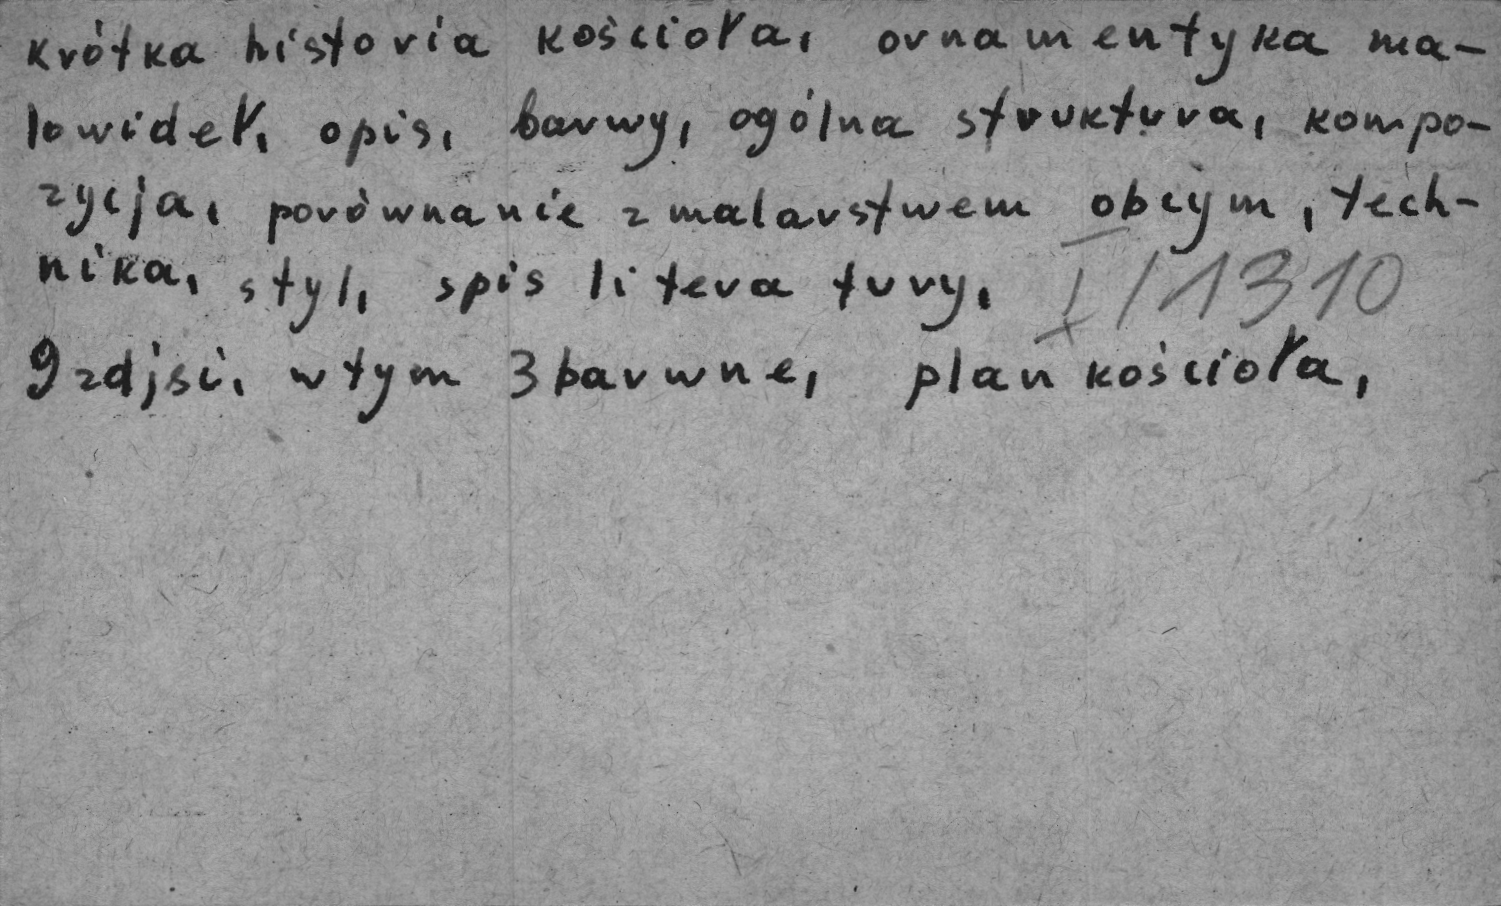 krótka historia kościoła, ornamentyka ma-
lowideł, opis, barwy, ogólna struktura, kompo-
zycja, porównanie z malarstwem obcym, tech-
nika, styl, spis literatury, I/1310
9 zdjęć, w tym 3 barwne, plan kościoła,